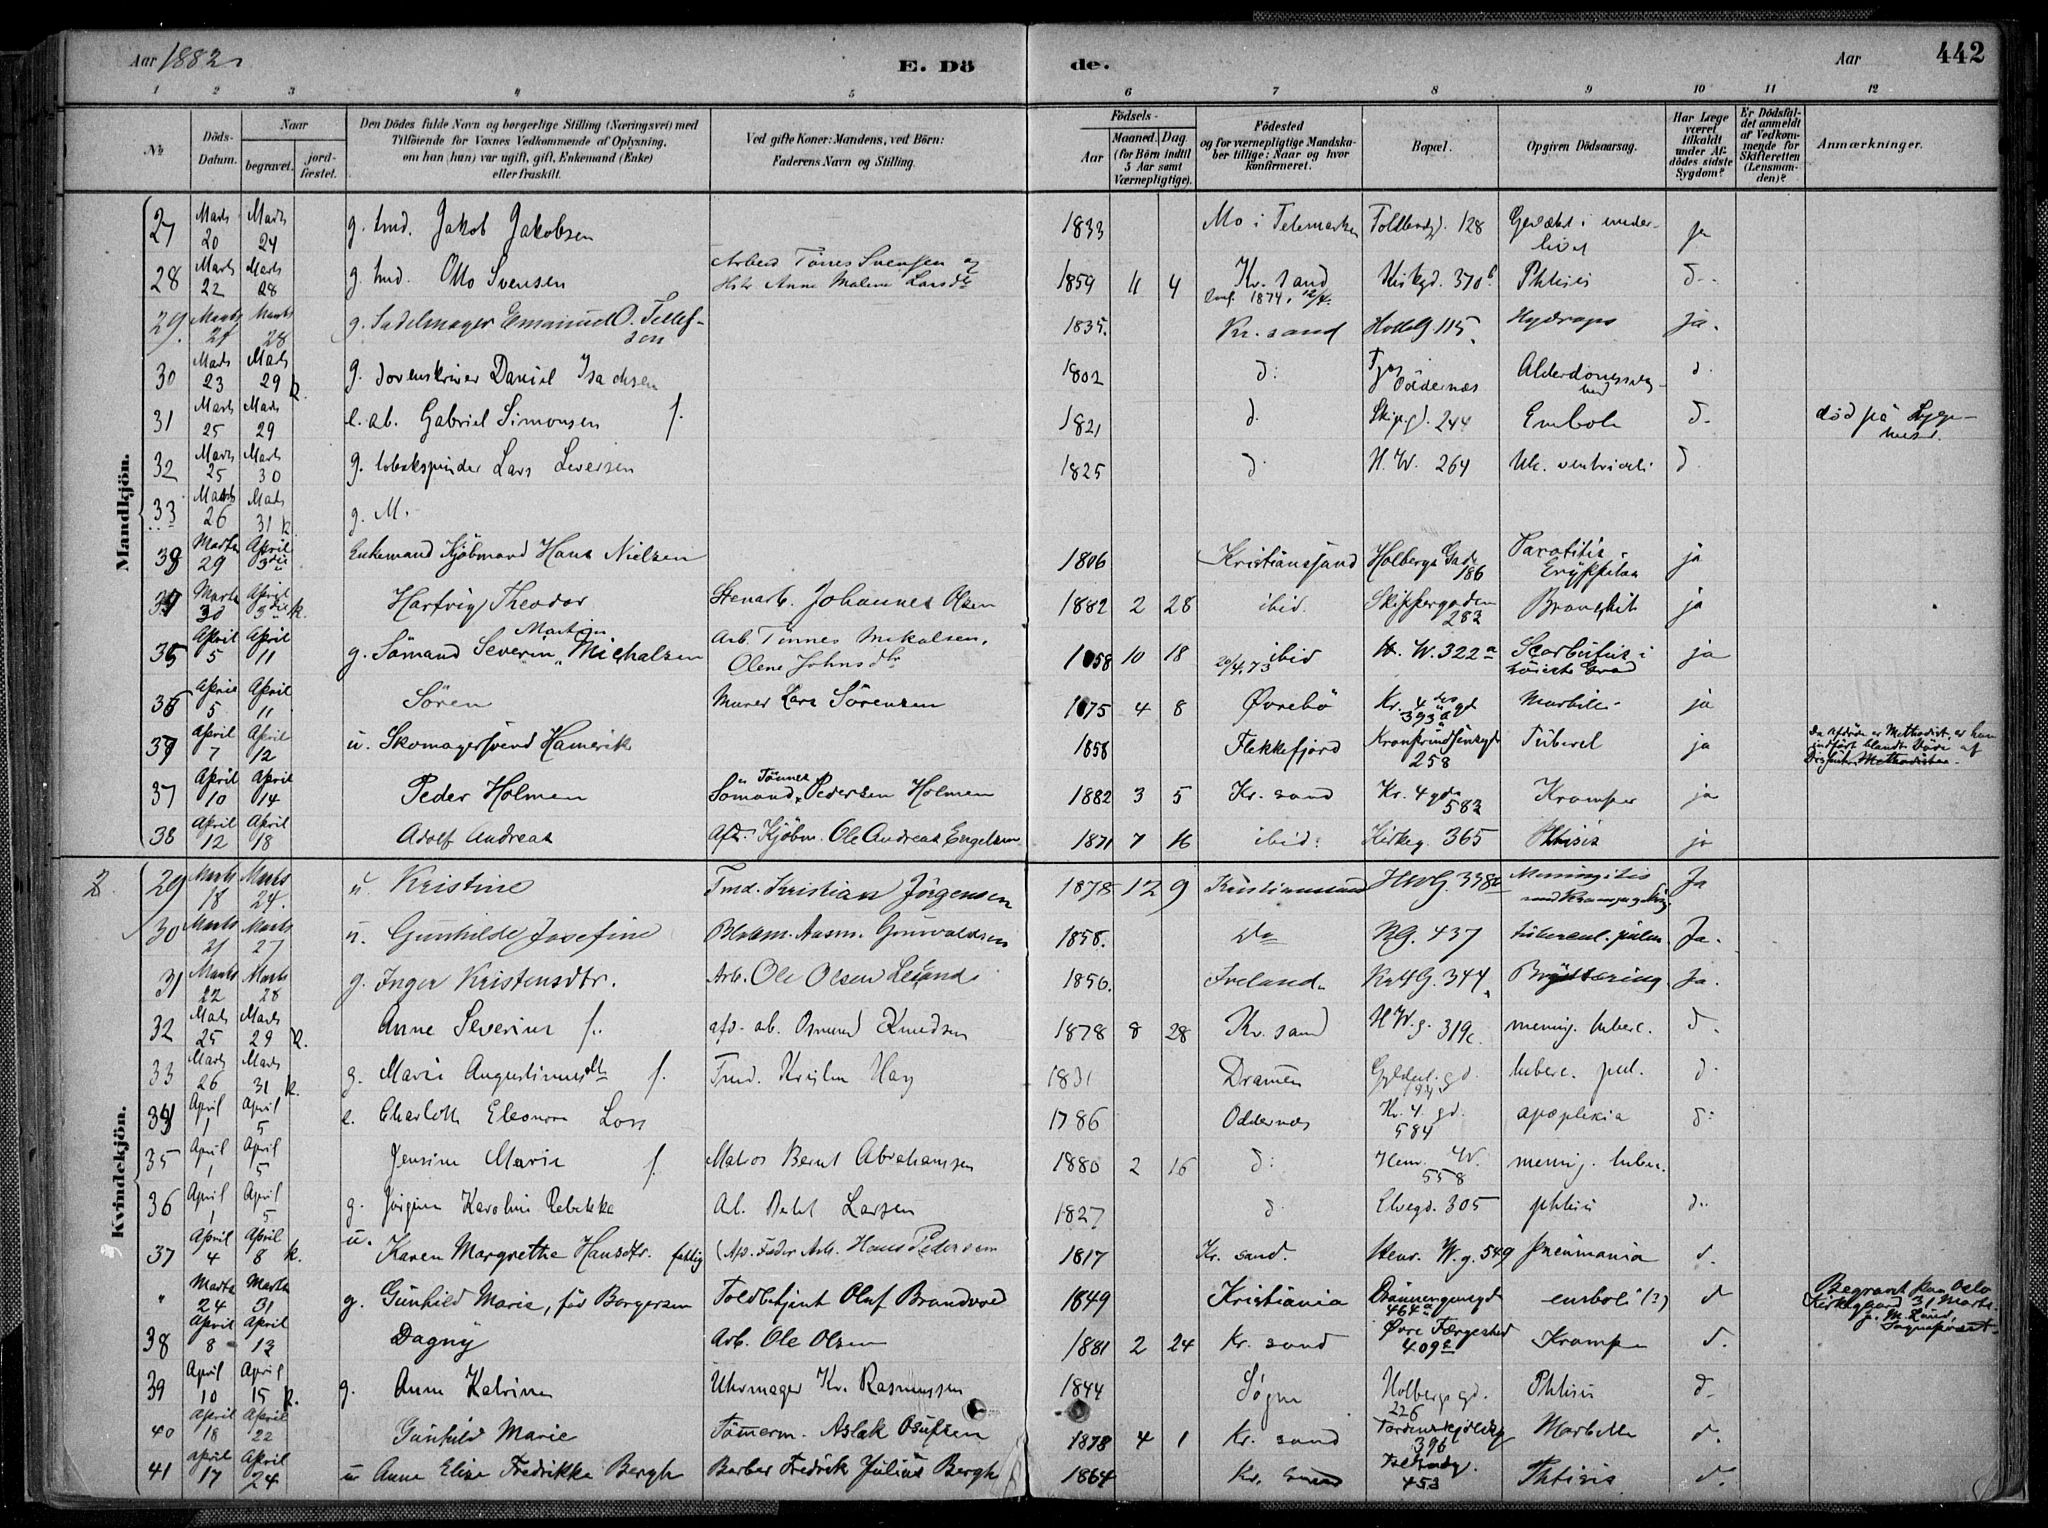 Aar 1882.
E. Dö
de.
Aar
442
1 2 3 4 5 6 7 8 9 10 11 12
No
Döds-Datum.
Naar
begravet.
jord-fæstet.
Den Dödes fulde Navn og borgerlige Stilling (Næringsvei) med
Tilföiende for Voxnes Vedkommende af Oplysning,
om han (hun) var ugift, gift, Enkemand (Enke)
eller fraskilt.
Ved gifte Koner: Mandens, ved Börn:
Faderens Navn og Stilling.
Födsels-
Aar
Maaned. Dag
(for Börn indtil
5 Aar samt
Værnepligtige).
Födested
og for værnepligtige Mandska-
ber tillige: Naar og hvor
konfirmeret.
Bopæl.
Opgiven Dödsaarsag.
Har Læge
været
tilkaldt
under Af-
dödes sidste
Sygdom?
Er Dödsfal-
det anmeldt
af Vedkom-
mende for
Skifteretten
(Lensman-
den)?
Anmærkninger.
Mandkjön.
27 Marts 20 Marts 24 g. tmd. Jakob Jakobsen 1833 Mo i Telemarken Toldbodgd. 128 ja
28 Marts 22 Marts 28 g. tmd. Otto Svensen Arbeid Tönes Svensen og
Anne Malene Larsdtr 1859 11 4 Kr. sand Kirkgd. 370b Phtisis d.
29. Marts 21 Marts 28 g. Sadelmager Emanuel O. Tellefsen 1835. Kr. sand HolbG 115. Hydrops ja.
30 Marts 23 Marts 29 k. g. Sorenskriver Daniel Isachsen 1802 d: Oddernæs d.
31 Marts 25 Marts 29 e. ab. Gabriel Simonsen f. 1821 d. Skipgd. 244 Emboli d. död på Syge-
huset.
32 Marts 25 Marts 30 g. tobakspinder Lars Seversen 1825 d. H. W. 264 Ulc. ventriculi d.
33 Marts 26 Marts 31 k. g. M.
33 Marts 29 April 3die Enkemand Kjöbmand Hans Nielsen 1806 Kristianssand Holbergs Gade 186 Parotitis, ja
34 Marts 30 April 3die k. Hartvig Theodor Stenarb. Johannes Olsen 1882 2 28 ibid. Skippergaden 283 Bronchit ja
35 April 5 April 11 g. Sömand Severin Martin Michalsen Arb. Tönnes Mikalsen,
Olene Johnsdtr 1858 10 18 20/4.73 ibid H. W. 322a Scorbutus i
höieste Grad ja
36 April 5 April 11 Sören Murer Lars Sörensen 1875 4 8 Øvrebö Kr. 4des gd 393a Morbili ja
37 April 7 April 12 u. Skomagersvend Hamerik 1858 Flekkefjord Kronprindsensgd 258 Tuberel ja Da afdöde er Methodist, er han
indfört blandt Döde af
37 April 10 April 14 Peder Holmen Sömand Tönnes Pedersen Holmen 1882 3 5 Kr. sand Kr. 4 gd. 582 Kramper ja
38 April 12 April 18 Adolf Andreas Afd. Kjöbm. Ole Andreas Engelsen 1871 7 16 ibid: Kirkeg. 365 Phtisis ja
Kvindekjön.
29 Marts 18 Marts 24. u Kristine Tmd. Kristian Jörgensen 1878 12 9 Kristianssand HWG. 338b Meningitis Ja
30 Marts 21 Marts 27 u. Gunhilde Josefine Aasm. Grunvaldsen 1858. Do RG. 437 tubercul. pulm. Ja.
31 Marts 22 Marts 28 g. Inger Kristensdtr. Arb. Ole Olsen Leland 1856. Iveland. 344. Brysttæring Ja.
32 Marts 25 Marts 29 k. Anne Severine f. afd. ab. Osmund Knudsen 1878 8 28 Kr. sand H W. g. 319c. mening. tuberc. d.
33 Marts 26 Marts 31 k. g. Marie Augustinusdtr f. Tmd. Kristen Hay 1831 Dramen Gyldenl. gd. tuberc. pul. d.
34 April 1 April 5 e. Charlotte Eleonora Loss 1786 Oddernæs Kr. 4. gd. 584 apoplexia d:
35 April 1 April 5 Jensine Marie f. Matros Bernt Abrahamsen 1880 2 16 d: Henr. W. 558 mening. tuber.
36 April 1 April 5 g. Jörgine Karoline Rebekka Ab. Larsen 1827 d Elvegd. 305 phtisis d.
37 April 4 April 8 k. u. Karen Margrethe Hansdtr. fattig (Afd. Fader Arb. Hans Pedersen 1817 Kr. sand. Henr. W. g. 549 pneumonia d.
" Marts 24 Marts 31 g. Gunhild Marie, föd Borgersen Toldbetjent Oluf Brandvold 1849 Kristiania Dronningensgd 464a emboli (?) d Begravet paa Oslo
Kirkegaard 31 Marts
38 April 8 April 13 Dagny Arb. Ole Olsen 1881 2 24 Kr. sand Øvre Færgested 409c Krampe d.
39 April 10 April 15 k. g. Anne Katrine Uhrmager Kr. Rasmussen 1844 Søgne Holbergs gd. 226 Phtisis d.
40 April 18 April 22 Gunhild Marie Tömerm. Aslak Osufsen 1878 4 1 Kr. sand Tordenskjoldsg 396 d.
41 April 17 April 24 u Anne Elise Fredrikke Bergh Barber Fredrik Julius Bergh 1864 Kr. sand 453 Phtisis d.